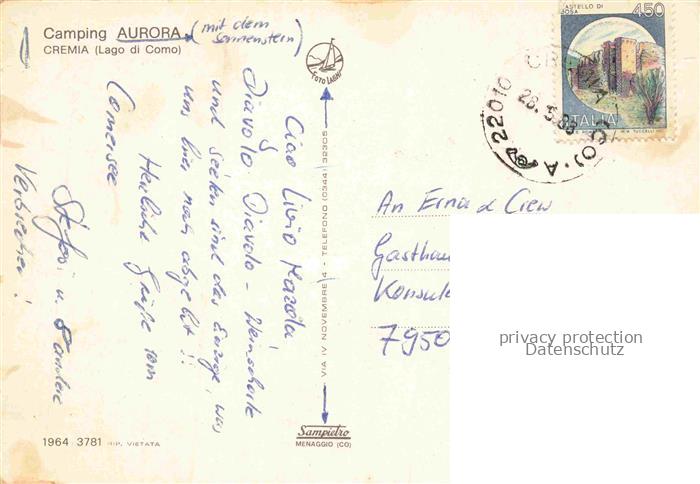 Camping AURORA
CREMIA (Lago di Como)
(mit dem
Sonnenstein)
FOTO LABOR
Ciao Livio Mazola
Diavolo Diavolo - Weinschorle
und Seeen sind das Einzige, was
uns hier noch abgeht !!
Herzliche Grüße vom
Comersee
Stefani u. 5 andere
Verbrecher !
VIA IV NOVEMBRE 4 - TELEFONO (0344) 32305
Sampietro
MENAGGIO (CO)
1964 3781 RIP. VIETATA
CASTELLO DI
450
ITALIA
22010 CREMIA (CO) A
28.5.88
An Erna & Crew
Gasthau
Konsule
7950
privacy protection
Datenschutz